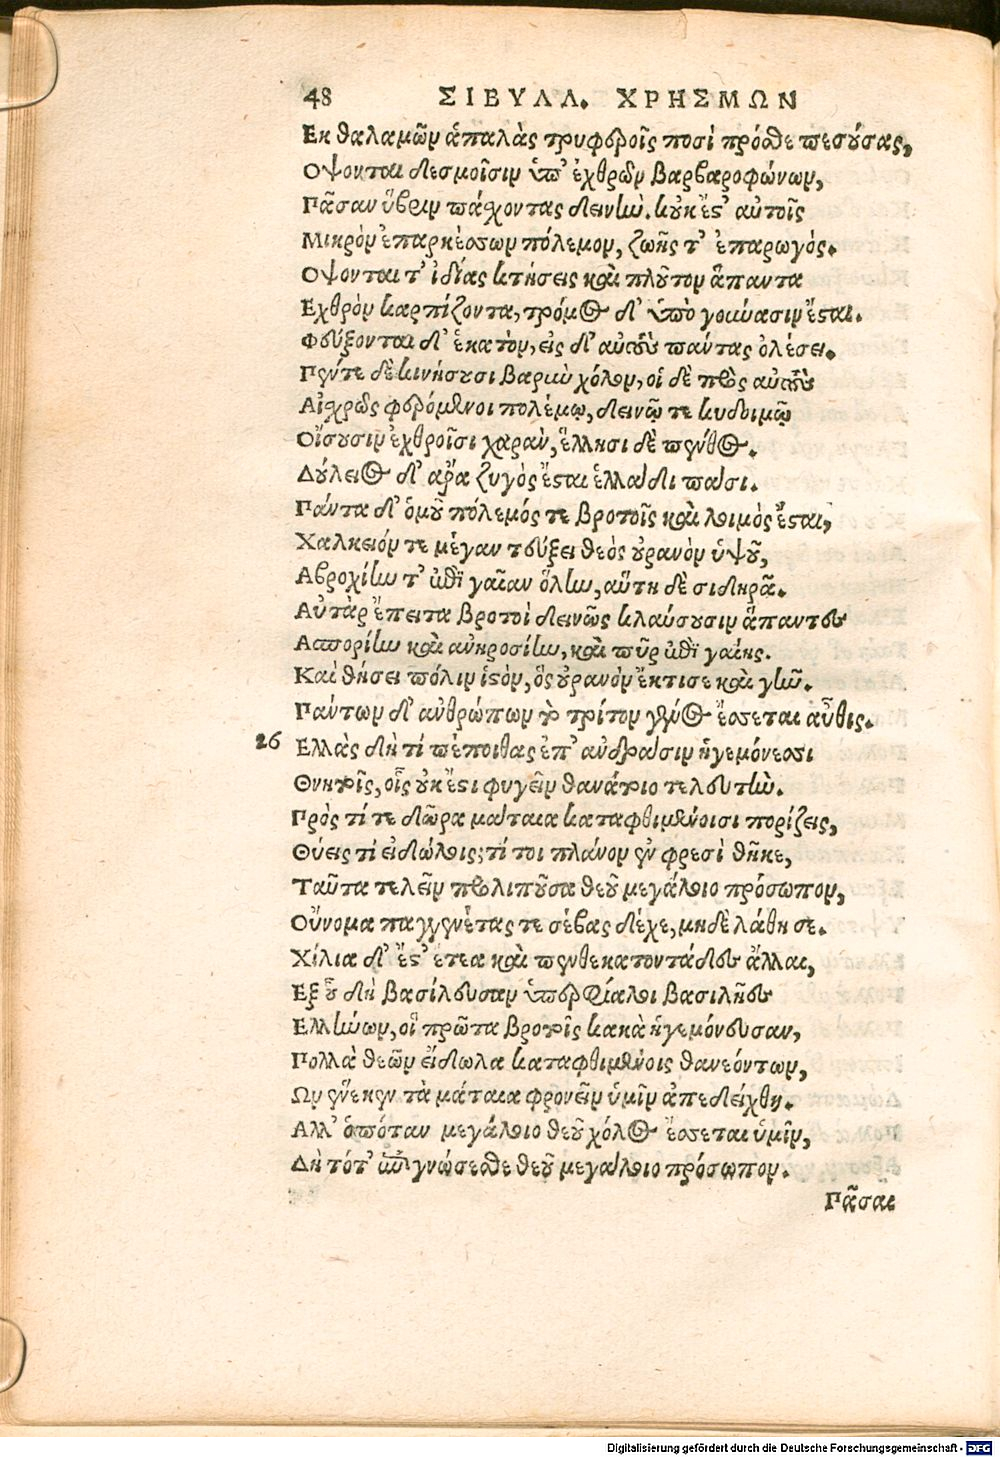 48 ΣΙΒΥΛΛ. ΧΡΗΣΜΩΝ
Εκ θαλαμῶν ἁπαλὰς τρυφεροῖς ποσὶ πρόσθε πεσούσας,
Οψονται δεσμοῖσιν ὑπ' ἐχθρῶν βαρβαροφώνων,
Πᾶσαν ὕβριν πάσχοντας δεινὴν. κοὐκ ἔστ' αὐτοῖς
Μικρὸν ἐπαρκέσσων πόλεμον, ζωῆς τ' ἐπαρωγός.
Οψονται τ' ἰδίας κτήσεις καὶ πλοῦτον ἅπαντα
Εχθρὸν καρπίζοντα, τρόμος δ' ὑπὸ γούνασιν ἔσται.
Φεύξονται δ' ἑκατὸν, εἷς δ' αὐτοὺς πάντας ὀλέσει.
Πέντε δὲ κινήσουσι βαρὺν χόλον, οἱ δὲ πρὸς αὐτοὺς
Αἰσχρῶς φυρόμενοι πολέμῳ, δεινῷ τε κυδοιμῷ
Οἴσουσιν ἐχθροῖσι χαρὰν, ἕλλησι δὲ πένθος.
Δούλειος δ' ἄρα ζυγὸς ἔσται ἑλλάδι πάσι.
Πάντα δ' ὁμοῦ πόλεμός τε βροτοῖς καὶ λοιμὸς ἔσται,
Χαλκειόν τε μέγαν τεύξει θεὸς οὐρανὸν ὑψοῦ,
Αβροχίην τ' ἐπὶ γαῖαν ὅλην, αὕτη δὲ σιδηρᾶ.
Αὐτὰρ ἔπειτα βροτοὶ δεινῶς κλαύσουσιν ἅπαντες
Ασπορίην καὶ ἀνηροσίην, καὶ πῦρ ἐπὶ γαίης.
Καὶ θήσει πόλιν ἱστόν, ὃς οὐρανὸν ἔκτισε καὶ γῆν.
Πάντων δ' ἀνθρώπων τὸ τρίτον γένος ἔσσεται αὖθις.
26 Ελλὰς δὴ τί πέποιθας ἐπ' ἀνδράσιν ἡγεμόνεσσι
Θνητοῖς, οἷς οὐκ ἔστι φυγεῖν θανάτοιο τελευτὴν.
Πρὸς τί τε δῶρα μάταια καταφθιμένοισι πορίζεις,
Θύεις τ' εἰδώλοις; τί τοι πλάνον ἐν φρεσὶ θῆκε,
Ταῦτα τελεῖν προλιποῦσα θεοῦ μεγάλοιο πρόσωπον,
Οὔνομα παγγενέταο τε σέβας δέχε, μηδὲ λάθη σε.
Χίλια δ' ἔστ' ἔτεα καὶ πένθ' ἑκατοντάδες ἄλλαι,
Εξ οὗ δὴ βασίλευσαν ὑπερφίαλοι βασιλῆες
Ελλήνων, οἳ πρῶτα βροτοῖς κακὰ ἡγεμόνευσαν,
Πολλὰ θεῶν εἴδωλα καταφθιμένοις θανεόντων,
Ων ἕνεκεν τὰ μάταια φρονεῖν ὑμῖν ἀπεδείχθη.
Αλλ' ὁπόταν μεγάλοιο θεοῦ χόλος ἔσσεται ὑμῖν,
Δὴ τότ' ἐπιγνώσεσθε θεοῦ μεγάλοιο πρόσωπον.
Πᾶσαι
Digitalisierung gefördert durch die Deutsche Forschungsgemeinschaft - DFG